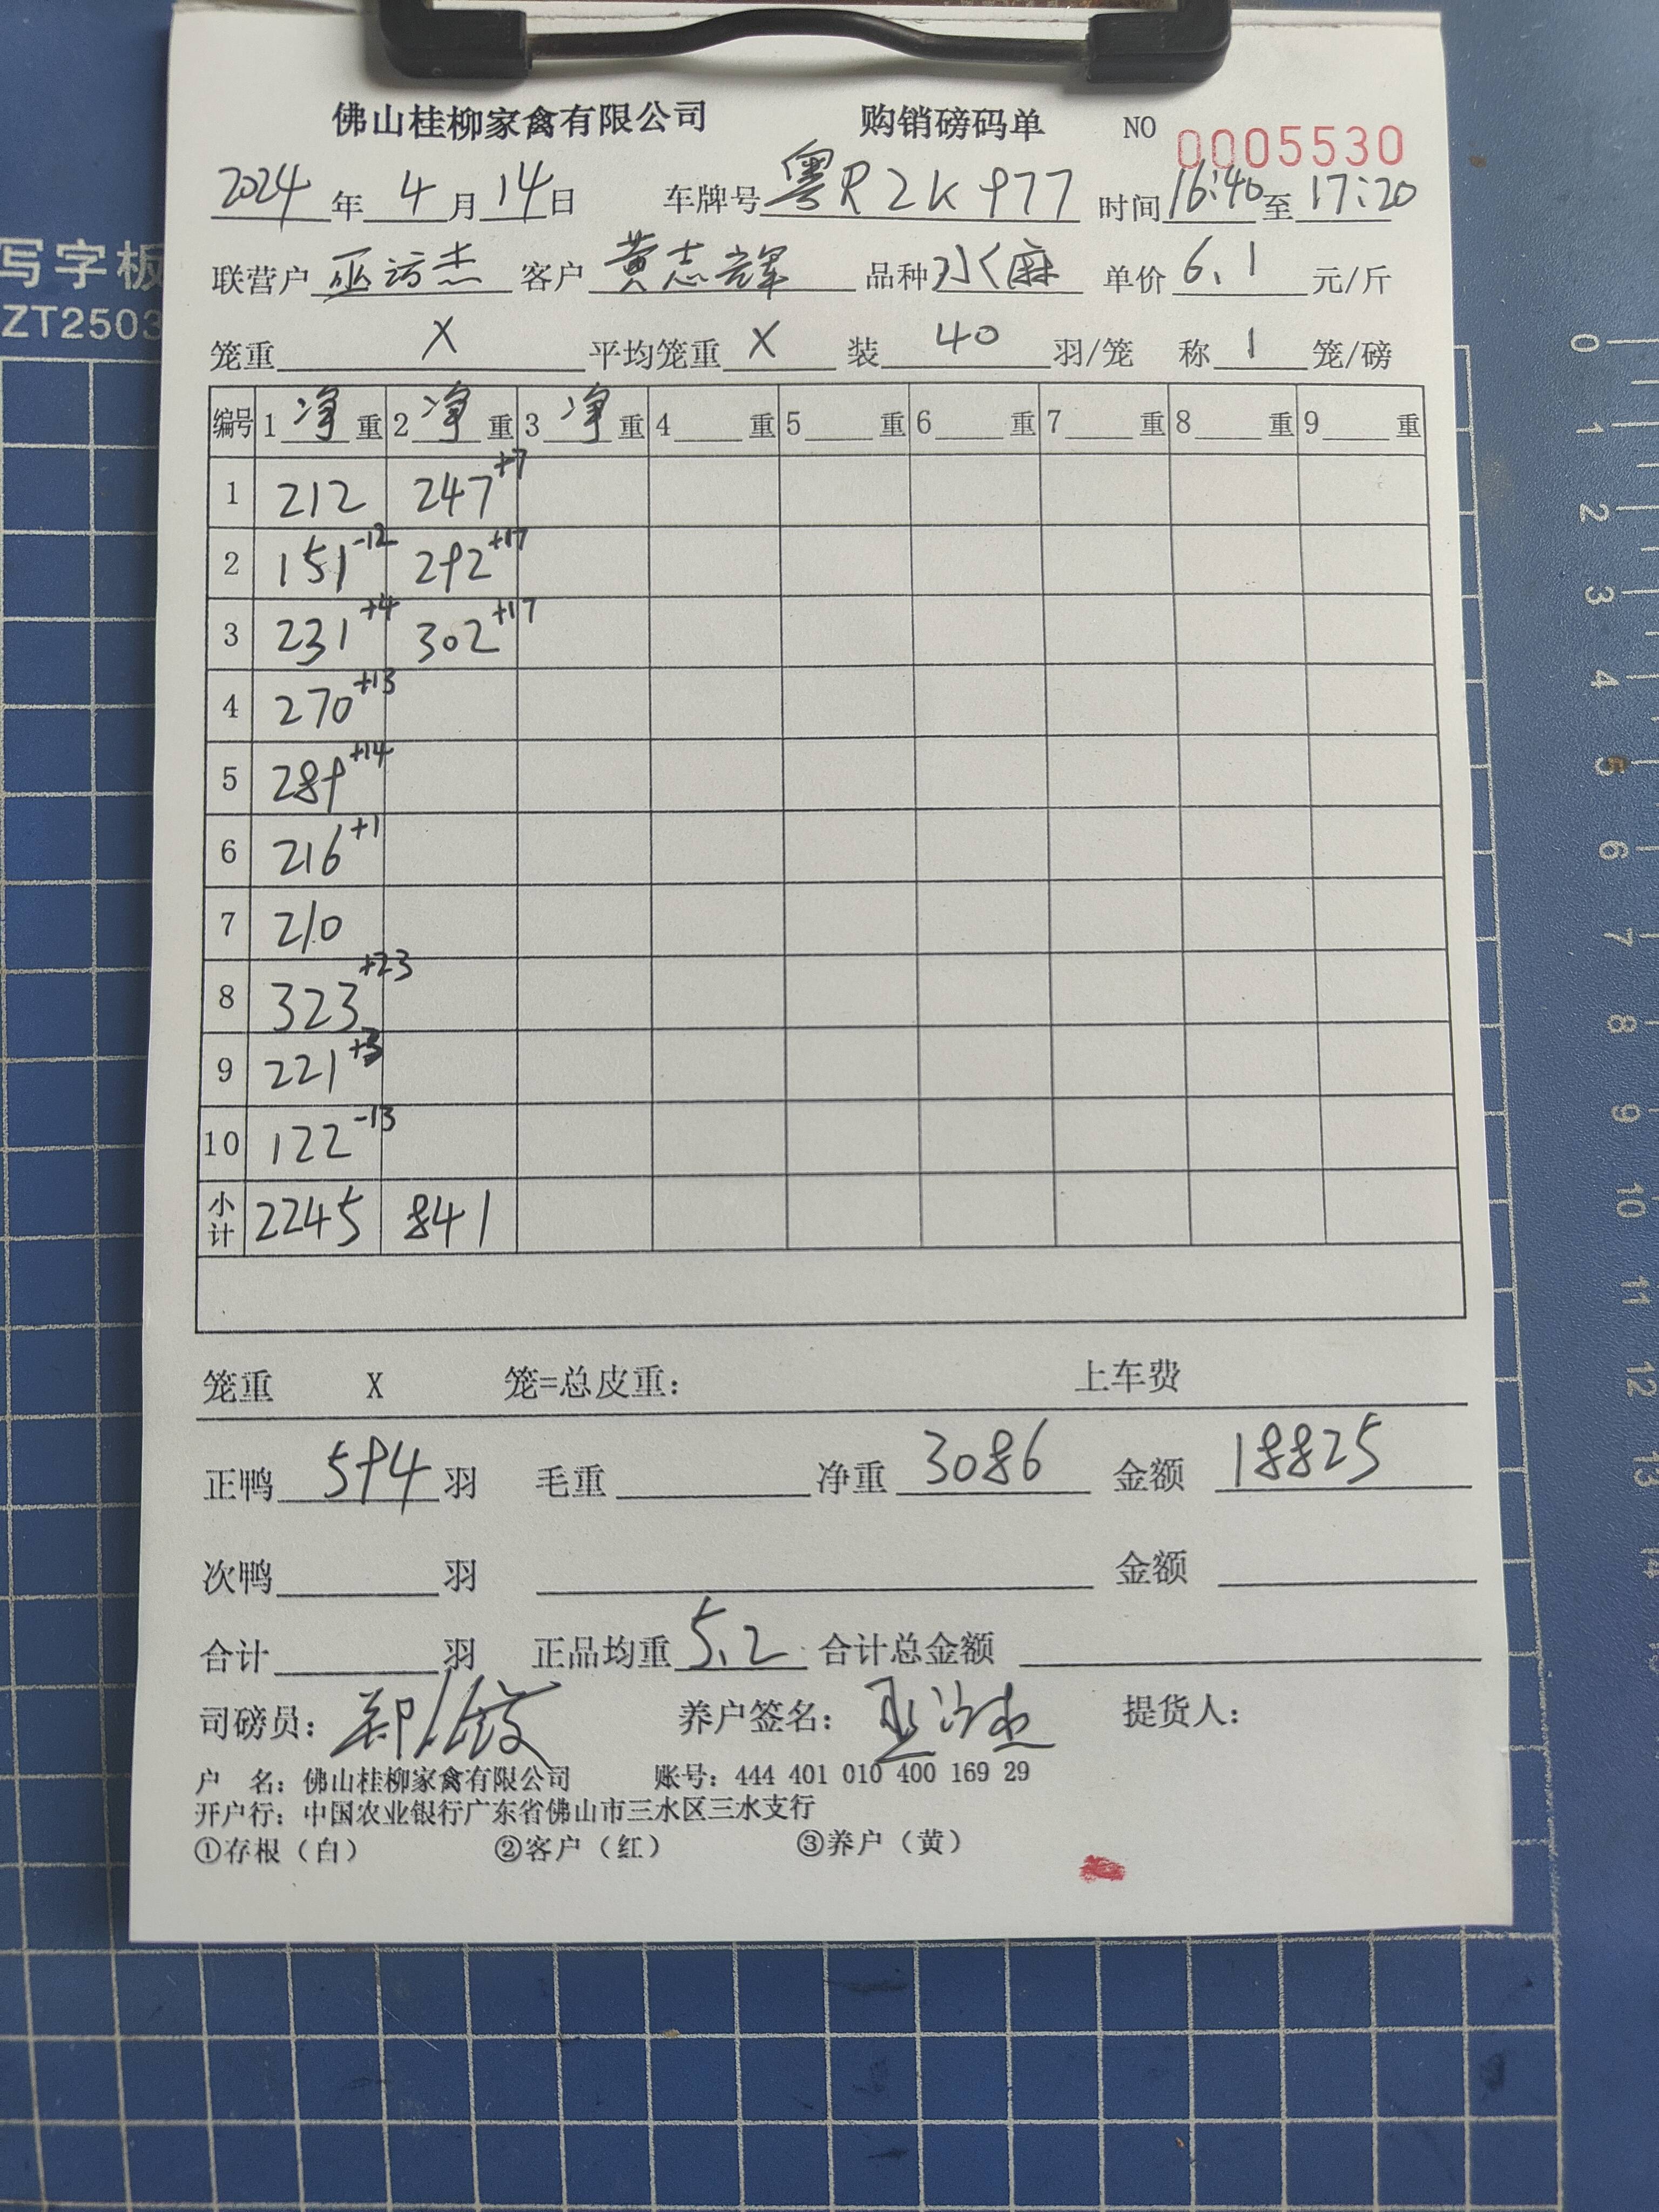 佛山桂柳家禽有限公司 购销磅码单 NO 0005530
2024年4月14日 车牌号 粤R2K977 时间 16:40 至 17:20
写字板
联营户 巫访杰 客户 黄志辉 品种 水麻 单价 6.1 元/斤
ZT2503
笼重 X 平均笼重 X 装 40 羽/笼 称 1 笼/磅
编号 1 净 重 2 净 重 3 净 重 4 重 5 重 6 重 7 重 8 重 9 重
1 212 247+7
2 151-12 292+17
3 231+4 302+17
4 270+13
5 289+14
6 216+1
7 210
8 323+23
9 221+3
10 122-13
小计 2245 841
笼重 X 笼=总皮重: 上车费
正鸭 594 羽 毛重 净重 3086 金额 18825
次鸭 羽 金额
合计 羽 正品均重 5.2 合计总金额
司磅员: 养户签名: 提货人:
户 名: 佛山桂柳家禽有限公司 账号: 444 401 010 400 169 29
开户行: 中国农业银行广东省佛山市三水区三水支行
①存根（白） ②客户（红） ③养户（黄）
0
1
2
3
4
5
6
7
8
9
10
11
12
13
14